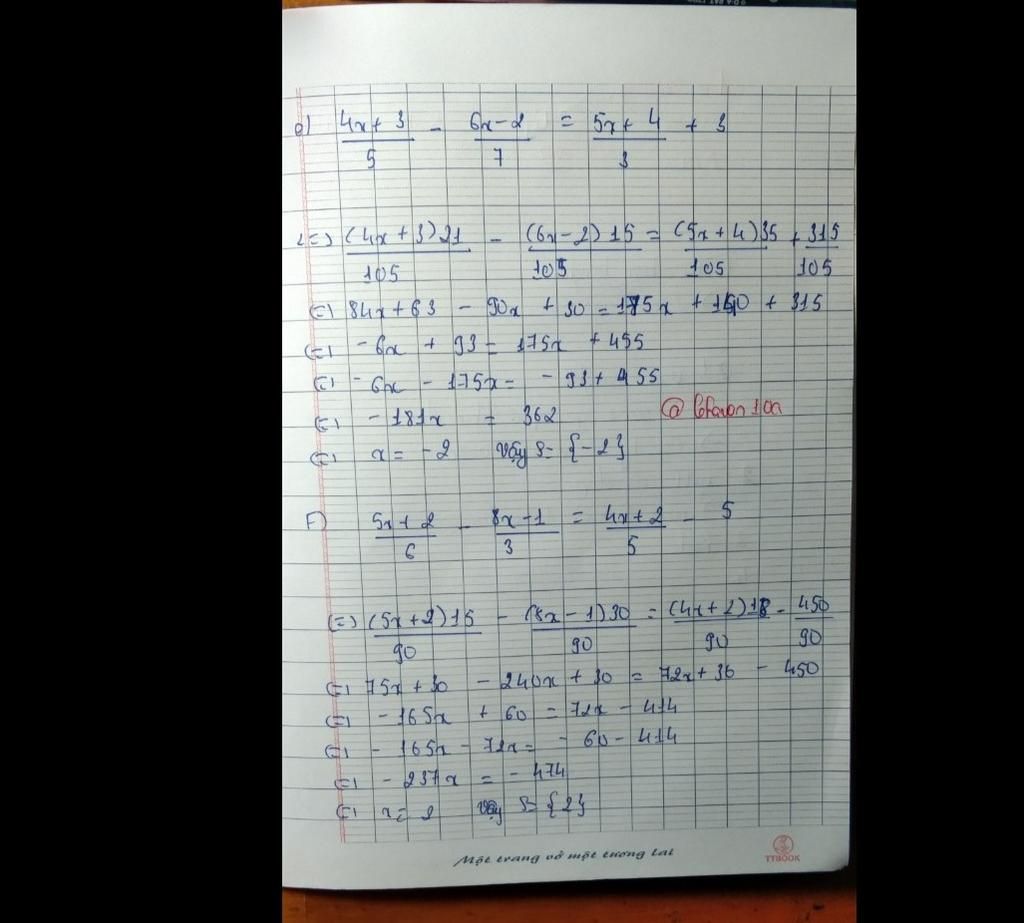 e) (4x+3)/5 - (6x-2)/7 = (5x+4)/3 + 3
<=> (4x+3)21/105 - (6x-2)15/105 = (5x+4)35/105 + 315/105
(=) 84x+63 - 90x + 30 = 175x + 140 + 315
(=) -6x + 93 = 175x + 455
(=) -6x - 175x = -93 + 455
(=) -181x = 362
(=) x = -2 vậy S = {-2}
F) (5x+2)/6 - (8x-1)/3 = (4x+2)/5 - 5
(=) (5x+2)15/90 - (8x-1)30/90 = (4x+2)18/90 - 450/90
(=) 75x+30 - 240x + 30 = 72x+36 - 450
(=) -165x + 60 = 72x - 414
(=) -165x - 72x = -60 - 414
(=) -237x = -474
(=) x = 2 vậy S = {2}
Một trang vở một tương lai
TTBOOK